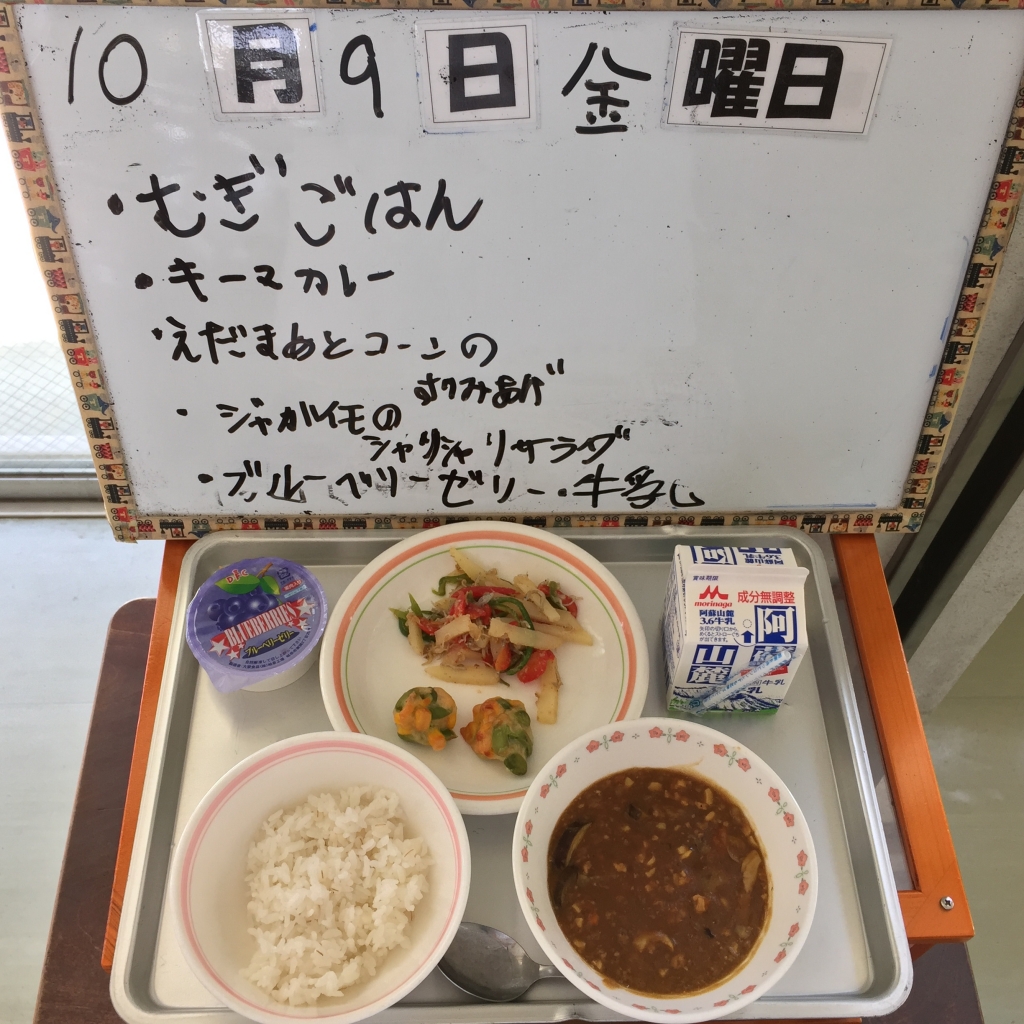 10月9日金曜日
・むぎごはん
・キーマカレー
えだまめとコーンの
すりみあげ
・ジャガイモの
シャリシャリサラダ
・ブルーベリーゼリー・牛乳
DFC
BLUEBERRIES
ブルーベリーゼリー
賞味期限
morinaga
成分無調整
阿蘇山麓
3.6牛乳
阿
山麓
牛乳